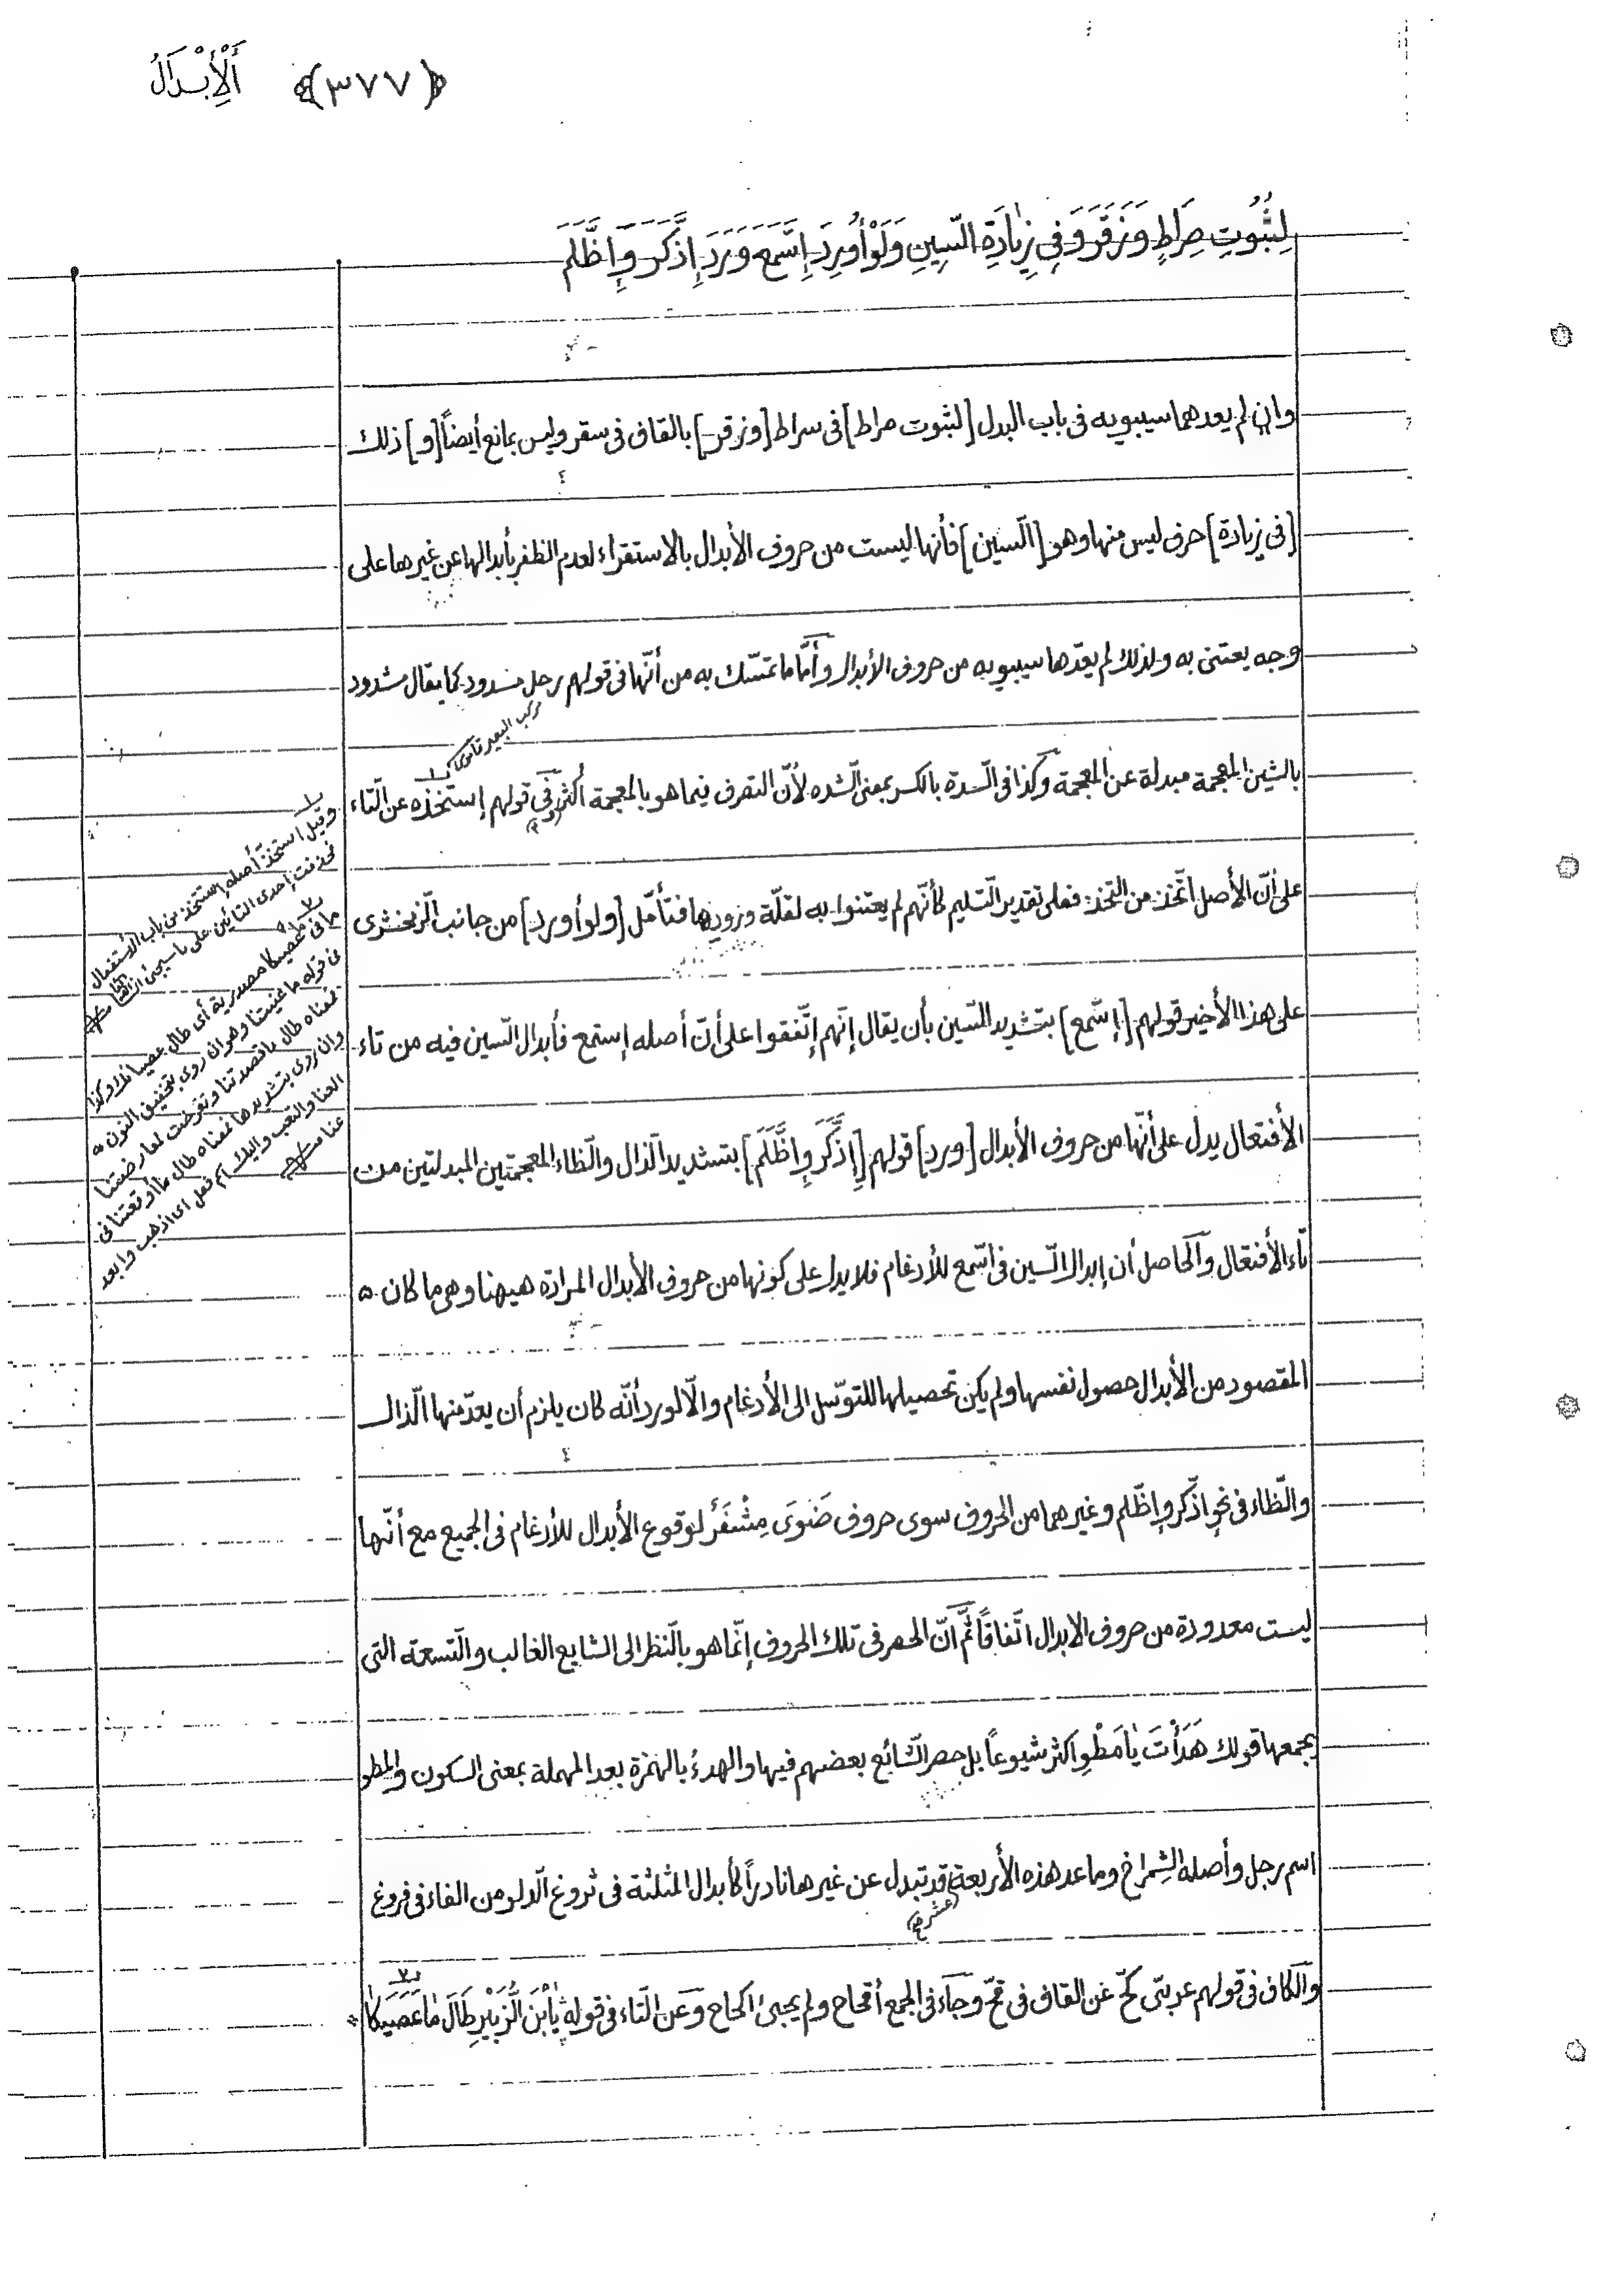 ﴿٣٧٧﴾ أَلْأِبْدَالُ
لِثُبُوتِ صِرَاطٍ وَزَقَرَ وَفِى زِيٰادَةِ السّينِ وَلَوْ أُورِدَ إِسَّمَعَ وَرَدَ إِذَّكَرَ وَإِظَّلَمَ
وان لم يعدهما سيبويه فى باب البدل [لثبوت صراط] فى سراط [وزقر] بالقاف فى سقر وليس بمانع أيضاً [و] ذلك
[فى زيادة] حرف ليس منها وهو [السّين] فأنها ليست من حروف الأبدال بالاستقراء لعدم الظفر بأبدالها عن غيرها على
وجه يعتنى به ولذلك لم يعدّها سيبويه من حروف الأبدال وأمّا ما تمسّك به من أنّها فى قولهم رجل مسدود كما يقال مشدود
بالشين المعجمة مبدلة عن المعجمة وكذا فى السّدة بالكسر بمعنى الشّده لأنّ التصرف فيما هو بالمعجمة أكثر وفى قولهم إستخذه عن التّاء
على أنّ الأصل اتّخذ من التخذ فعلى تقدير التّسليم كأنّهم لم يعتنوا به لقلّة ورودها فتأمّل [ولو أورد] من جانب الزّمخشرى
على هذا الأخير قولهم [إسّمع] بتشديد السّين بأن يقال إنّهم إتّفقوا على أنّ أصله إستمع فأبدال السّين فيه من تاء
الأفتعال يدل على أنّها من حروف الأبدال [ورد] قولهم [إِذَّكَرَ وَإِظَّلَمَ] بتشديد الذّال والظّاء المعجمتين المبدلتين من
تاء الأفتعال والحاصل أن إبدال السّين فى اسّمع للأدغام فلا يدل على كونها من حروف الأبدال المرادة هيهنا وهى ما كان
المقصود من الأبدال حصول نفسها ولم يكن تحصيلها للتوسّل الى الأدغام والّا لورد أنّه كان يلزم أن يعدّ منها الذّال
والظّاء فى نحو اذّكر وإظّلم وغيرهما من الحروف سوى حروف ضَوَىَ مِشْفَرٌ لوقوع الأبدال للأدغام فى الجميع مع أنّها
ليست معدودة من حروف الابدال اتّفاقاً ثمّ انّ الحصر فى تلك الحروف إنّما هو بالنّظر الى الشايع الغالب والتّسعة التى
يجمعها قولك هَدَأْتَ يٰا مَطْوِ اكثر شيوعاً بل حصر الشّائع بعضهم فيها والهدء بالهمزة بعد المهملة بمعنى السكون والمطو
اسم رجل وأصله الشِمراخ وما عد هذه الأربعة عشرة قد تبدل عن غيرها نادراً كأبدال المثلثة فى ثروغ الدّلو من الفاء فى فروغ
والكاف فى قولهم عربىّ كحّ عن القاف فى قحّ وجاء فى الجمع أقحاح ولم يجئ اكحاح وعن التّاء فى قوله يٰأبْنَ الزُّبَيْرِ طَالَ مٰا عَصَيكٰا
وقيل استخذ أصله إستتخذ من باب الأستفعال
فحذفت إحدى التائين على ما سيجئ
ما فى عصيكا مصدرية أى طال عصيانك وكذا
فى قوله ما عنيتنا وهو ان روى بتخفيف النون
فمعناه طال ما قصدتنا وتعرضت لمعارضتنا
وان روى بتشديدها فمعناه طال ما أوقعتنا فى
العنا والتعب واليك اسم فعل اى اذهب وابعد
عنا